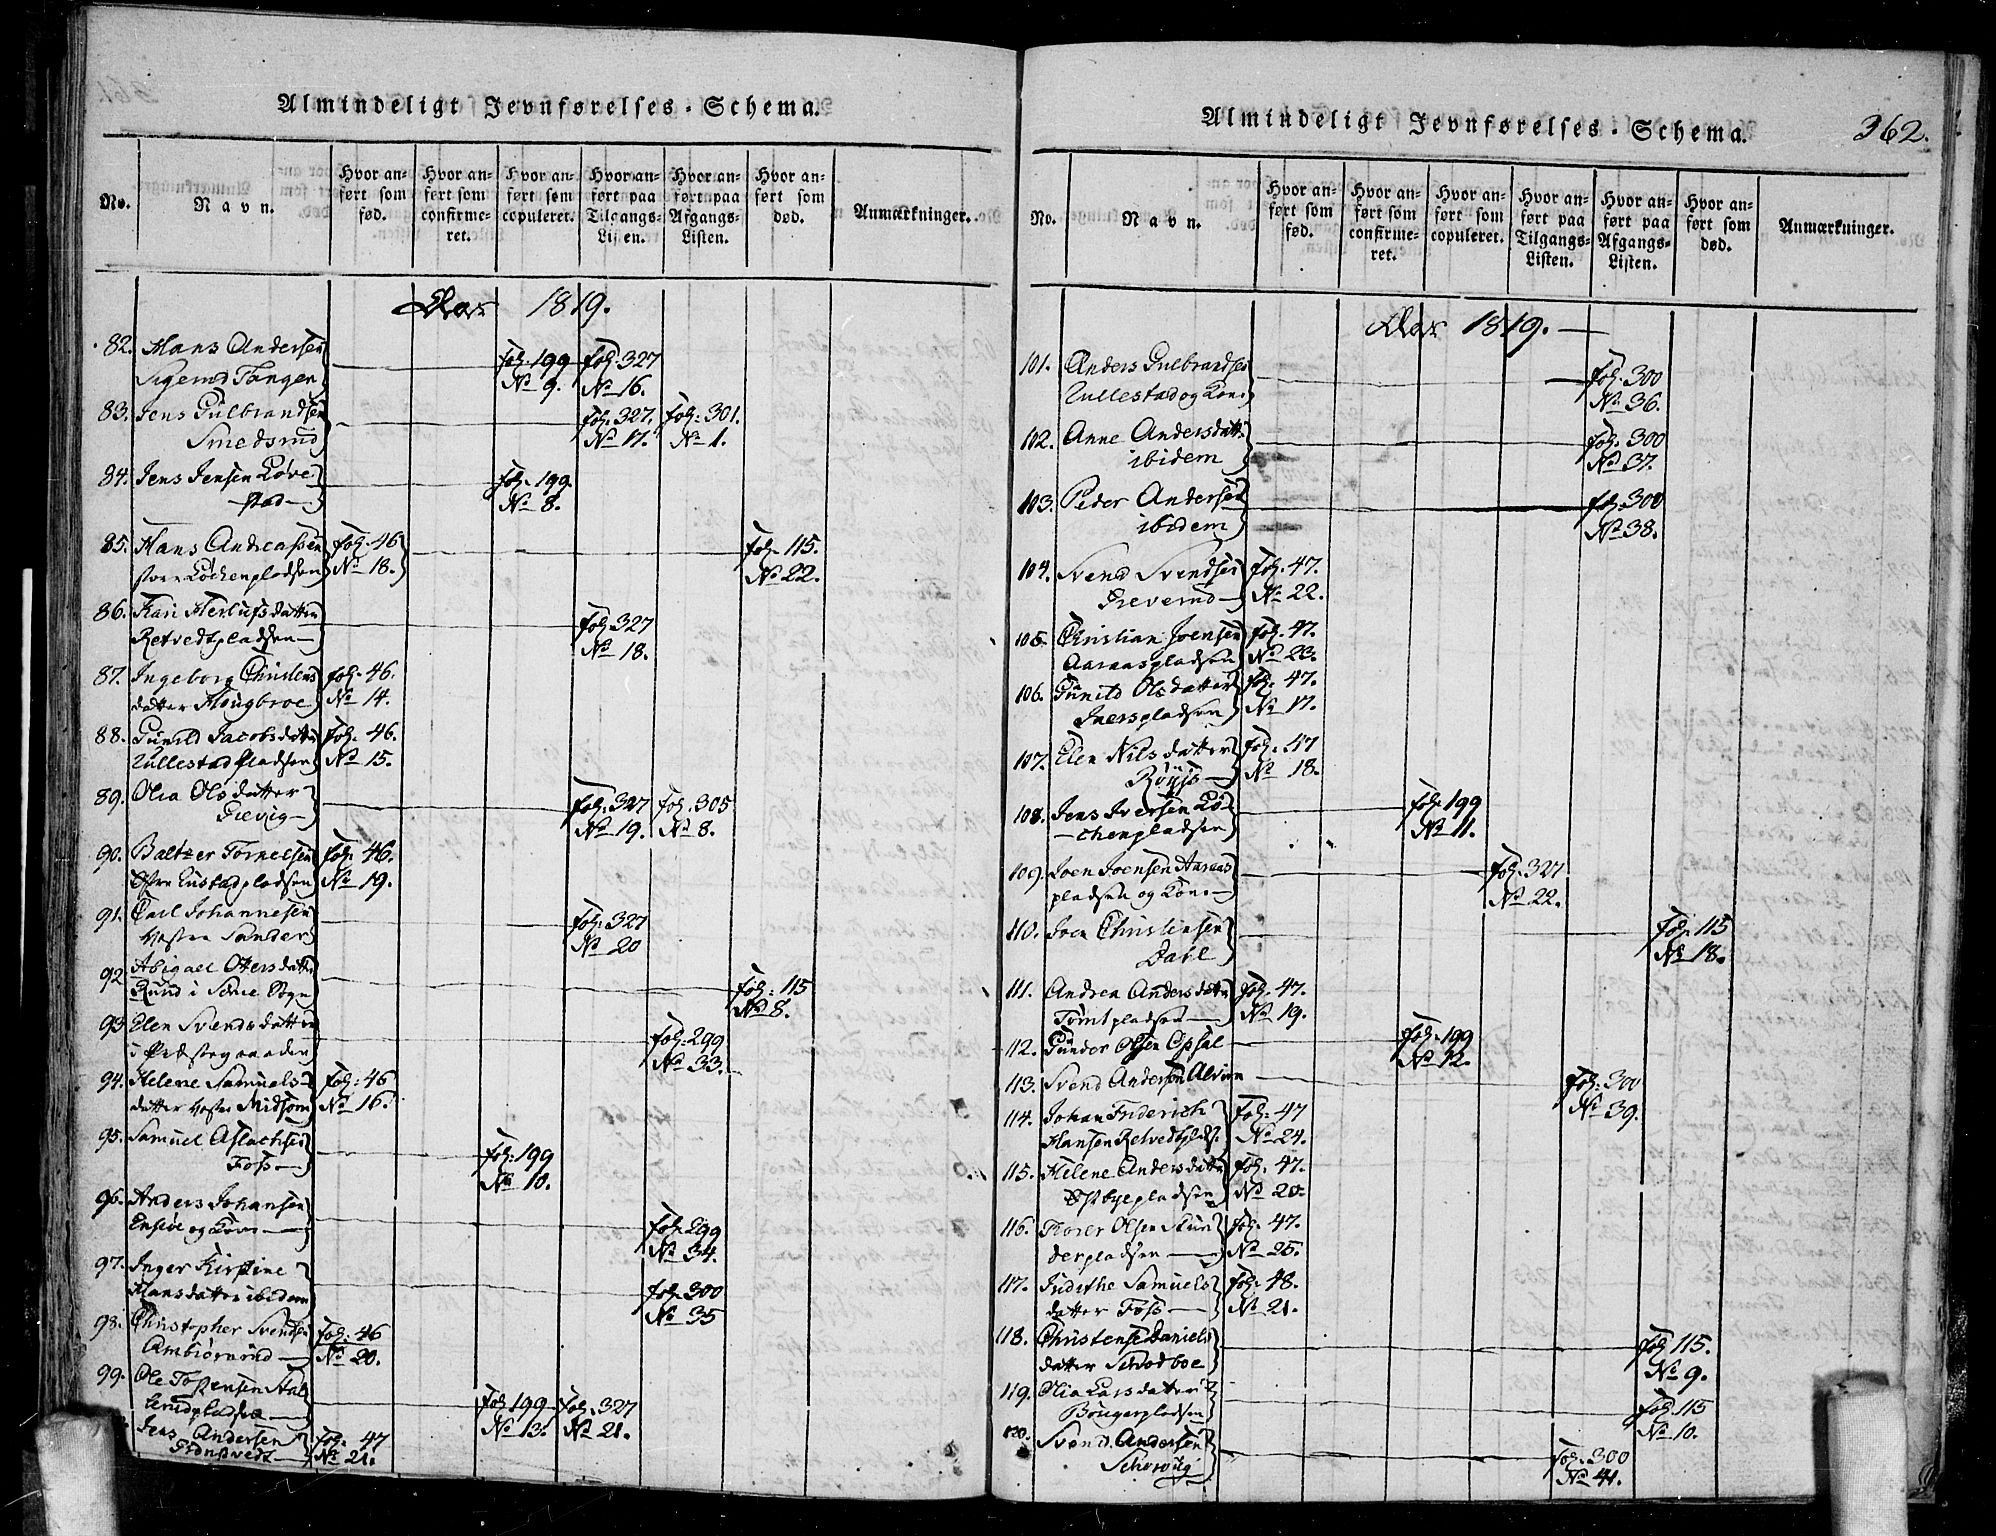 Almindeligt Jevnførelses-Schema.
No.
Navn.
Hvor an-
ført som
fød.
Hvor an-
ført som
confirme-
ret.
Hvor an-
ført som
copuleret.
Hvor an-
ført paa
Tilgangs-
Listen.
Hvor an-
ført paa
Afgangs-
Listen.
Hvor an-
ført som
død.
Anmærkninger.
Aar 1819.
82. Hans Andersen
Tangen
fol. 199 fol. 327
No 9. No 16.
83. Jens Gulbrandsen
Smedsrud
fol. 327. fol. 301.
No 17. No 1.
84. Jens Jensen Løve
stad
fol. 199.
No 8.
85. Hans Andreassen fol. 46
Løchenpladsen No 18.
fol. 115.
No 22.
86. Kari Herlufsdatter
Retvedtpladsen
fol. 327
No 18.
87. Ingeborg Christens fol. 46.
datter Haugbroe No 14.
88. Gunild Jacobsdatter fol. 46.
Ullestadpladsen No 15.
89. Olia Olsdatter
Grevig
fol. 327 fol. 305
No 19. No 8.
90. Baltzer Tornelsen fol. 46.
Østre Enstadpladsen No 19.
91. Carl Johannesen
Sander
fol. 327
No 20
92 Abigael Olersdatter
Rund i Sogn
fol. 115
No 8.
93 Elen Svendsdatter
i Præstegaarden
fol. 299
No 33.
94. Helene Samuels- fol. 46
datter Midsom No 16.
95. Samuel Aslachsen
Foss
fol. 199
No 10.
96. Anders Johansen
og Kone
fol. 299
No 34.
97. Inger Kirstine
Hansdatter ibidem
fol. 300
No 35
98. Christopher Svendsen fol. 46
Ambiørnrud No 20.
99. Ole
fol. 199 fol. 327
No 13. No 21.
Jens Andersen fol. 47
No 21.
Almindeligt Jevnførelses-Schema.
362.
No.
Navn.
Hvor an-
ført som
fød.
Hvor an-
ført som
confirme-
ret.
Hvor an-
ført som
copuleret.
Hvor an-
ført paa
Tilgangs-
Listen.
Hvor an-
ført paa
Afgangs-
Listen.
Hvor an-
ført som
død.
Anmærkninger.
Aar 1819.
101. Anders Gulbrandsen
Ullestad og Kone
fol. 300
No 36.
102. Anne Andersdatter
ibidem
fol. 300
No 37.
103. Peder Andersen
ibidem
fol. 300
No 38.
104. Svend Svendsen fol. 47.
Greverud No 22.
105. Christian Joensen fol. 47.
Aaraaspladsen No 23.
106. Gunild Olsdatter fol. 47.
No 17.
107. Elen Nilsdatter fol. 47
No 18.
108. Jens Iversen Lø-
chenpladsen
fol. 199
No 11.
109. Joen Joensen Aaraas
pladsen og Kone
fol. 327
No 22.
110. Joen Christensen
Dahl
fol. 115
No 18.
111. Andrea Andersdatter fol. 47.
Tomtpladsen No 19.
112. Gunder Olsen Opsal
fol. 199
No 12.
113. Svend Andersen
fol. 300
No 39.
114. Johan Friderich fol. 47
Hansen Retvedtplads. No 24.
115. Helene Andersdatter fol. 47.
Østbyepladsen No 20.
116. Thorer Olsen fol. 47.
derpladsen No 25.
117. Judithe Samuels fol. 48.
datter Foss No 21.
118. Christense Daniels
datter
fol. 115.
No 9.
119. Olia Larsdatter
fol. 115
No 10.
120. Svend Andersen
fol. 300
No 41.